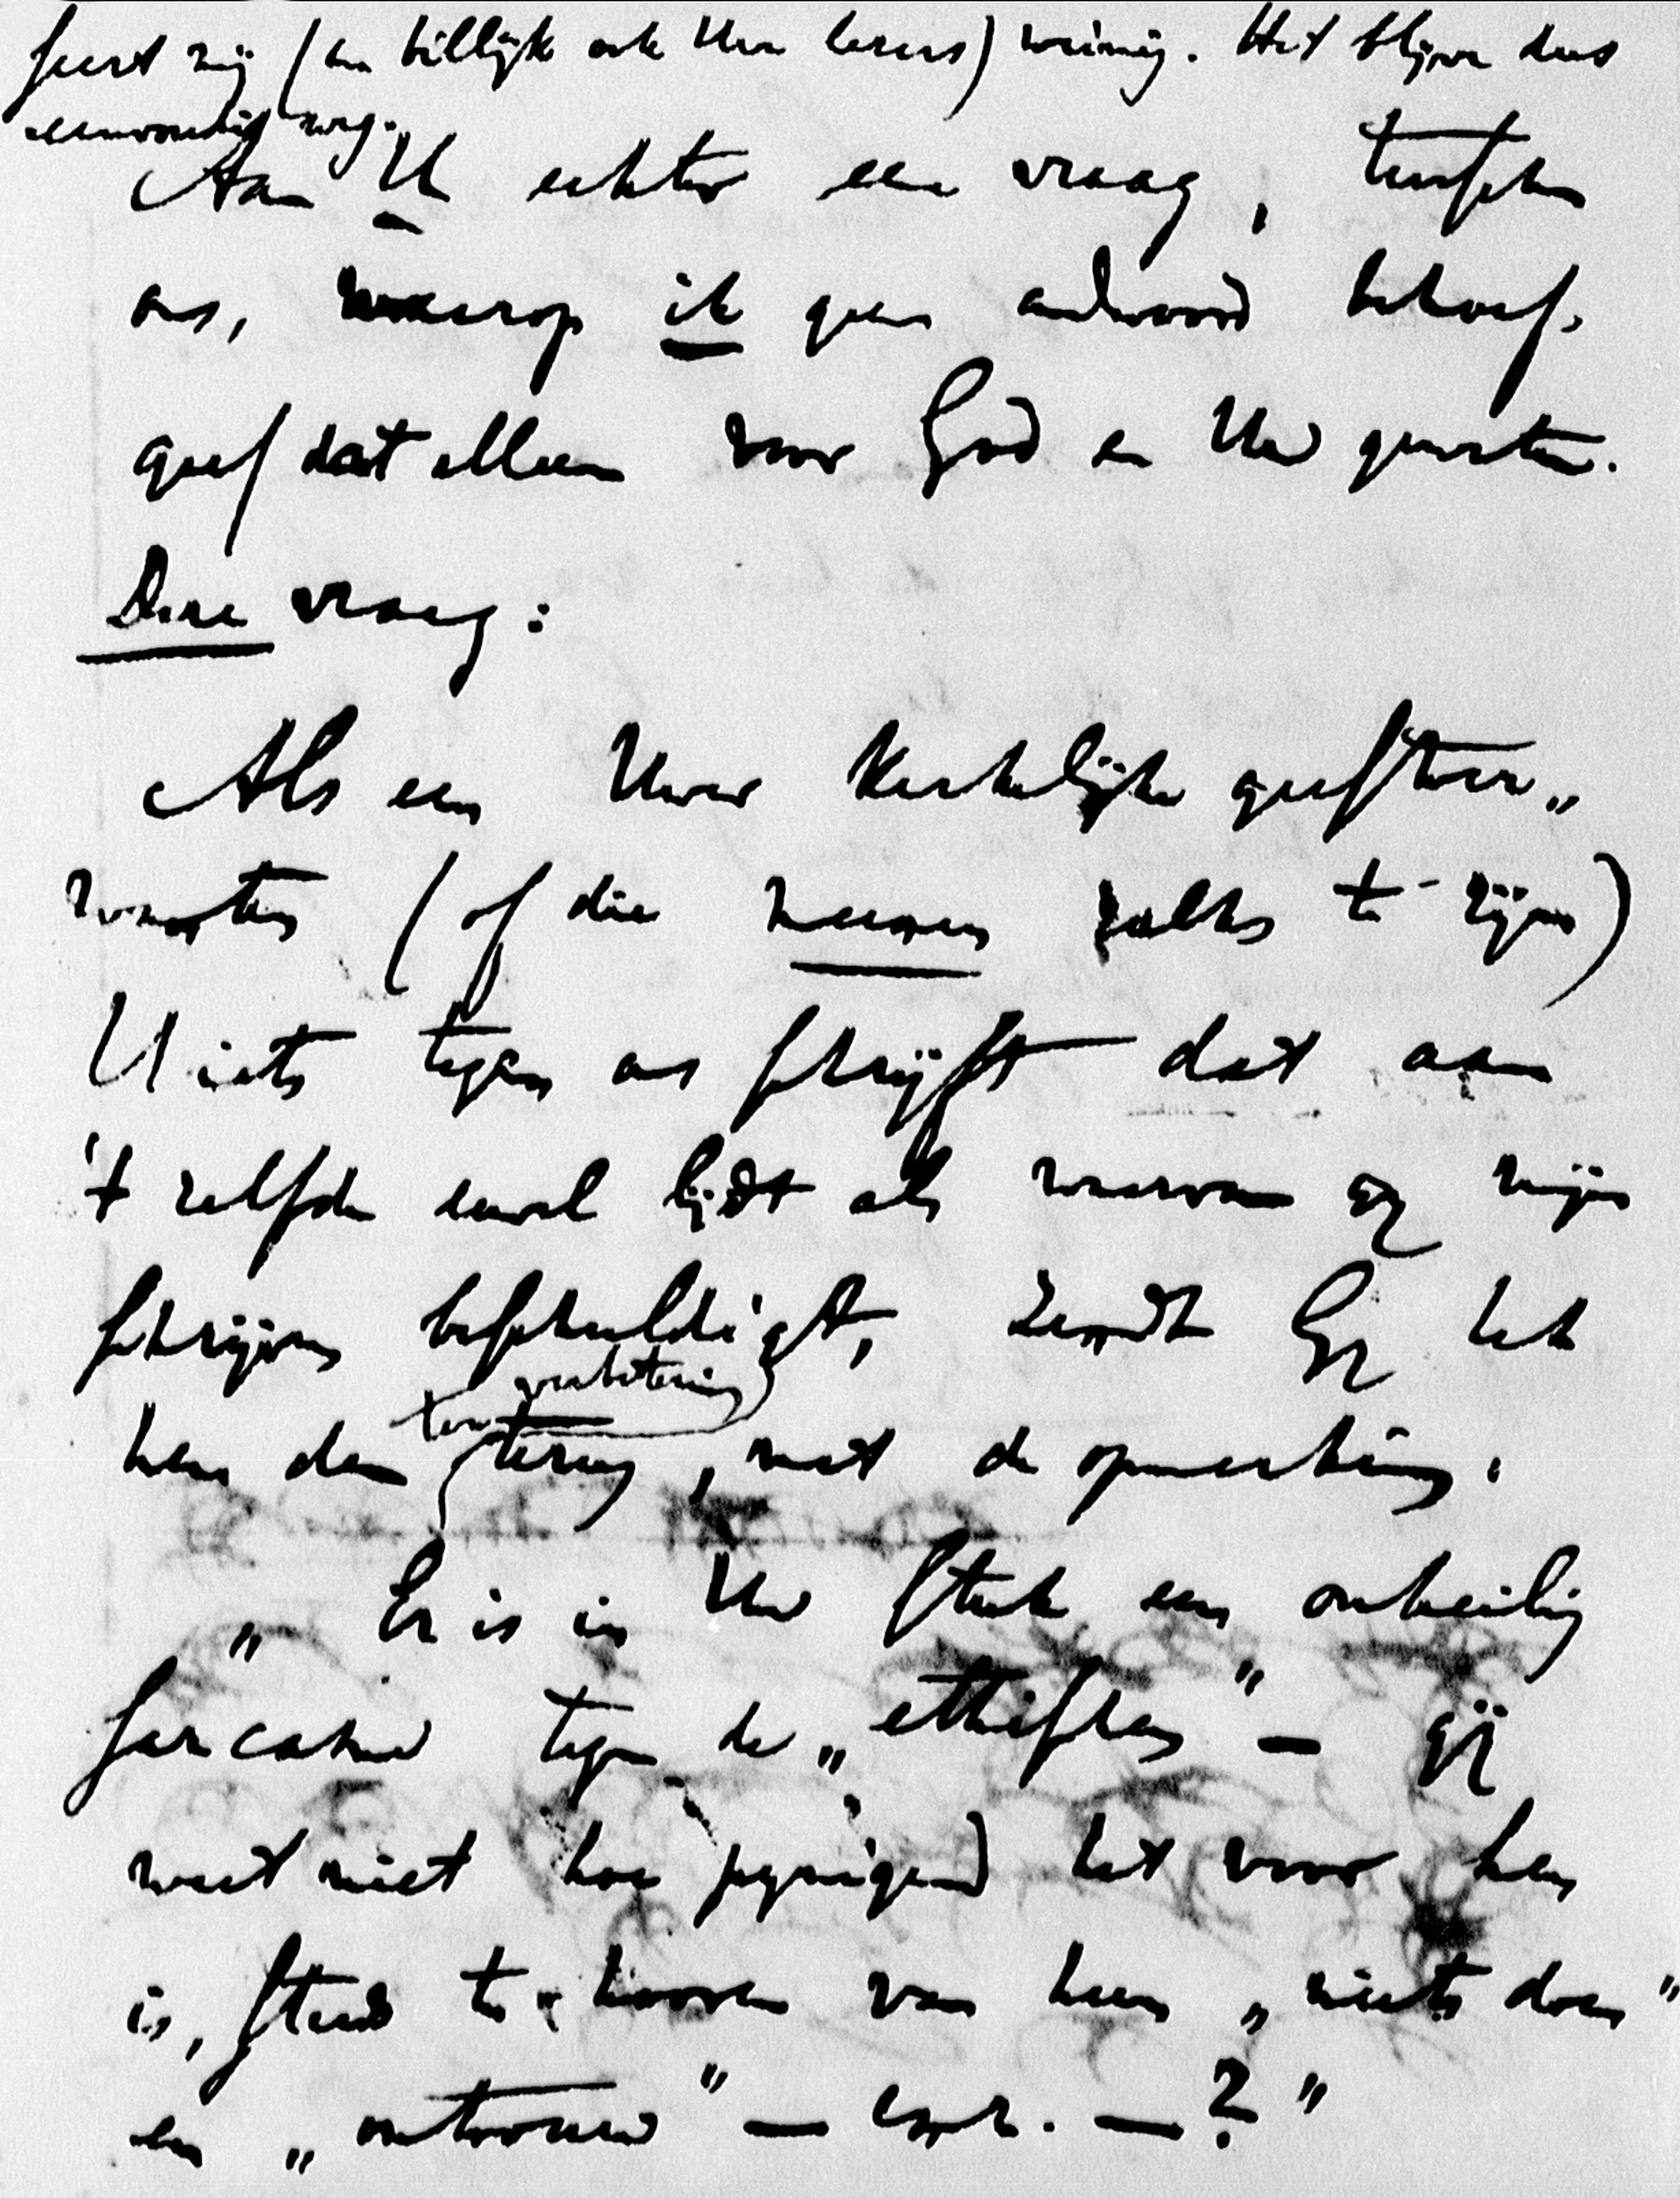 mij (en billijk ook Uw lezers) weinig. Het blijve dus
eenvoudig weg.
Aan U echter een vraag, tusschen
ons, waarop ik geen antwoord behoef.
geef dat alleen voor God en Uw geweten.
Deze vraag:
Als een Uwer Kerkelijke geestver„
wanten (of die meenen zulks te zijn)
U iets tegen ons schrijft dat aan
't zelfde euvel lijdt als waarvan gij mijn
schrijven beschuldigt, zendt Gij het
hem dan ter verbetering terug, met de opmerking:
„Er is in Uw stuk een onheilig
sarcasme tegen de „ethischen" — gij
weet niet hoe pijnigend het voor hen
is, steeds te hooren van hun „niets doen"
en „ontrouw" — enz. — ?"